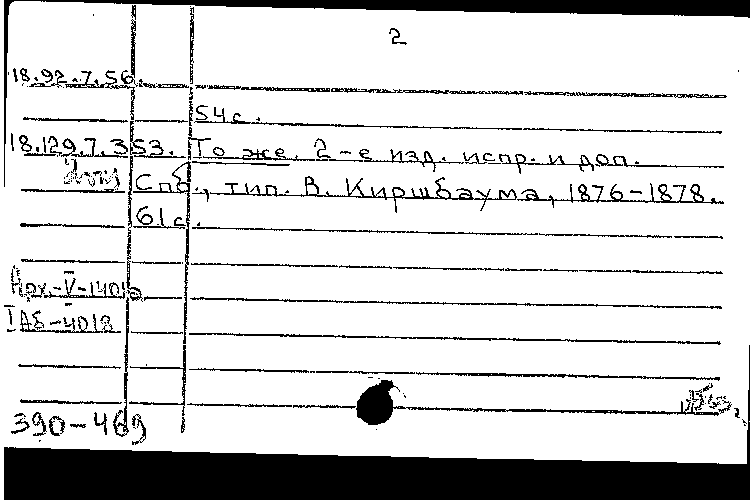 2
18.92.7.56.
54с.
18.129.7.353. То же. 2-е изд. испр. и доп.
Спб., тип. В. Киршбаума, 1876-1878.
61с.
Арх.-V-1401а
I Аб-4018
390-469